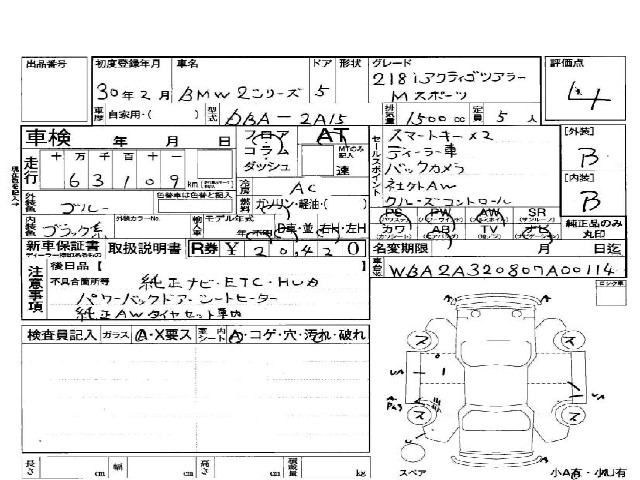 出品番号 初度登録年月 車名 ドア 形状 グレード 評価点
30年2月 BMW2シリーズ 5 218iアクティブツアラー
Mスポーツ 4
車歴 自家用・( ) 型式 DBA-2A15 排気量 1500cc 定員 5 人
車検 年 月 日 フロア AT スマートキー×2 [外装]
走行 十 万 千 百 十 一 コラム MTのみ記入 ディーラー車 B
63109 km ダッシュ 速 セールスポイント バックカメラ
冷房 AC 社外AW [内装]
外装色 ブルー 色替車は色替と記入 燃料 ガソリン・軽油・( ) クルーズコントロール B
内装色 ブラック系 外装カラーNo. 輸入車 モデル年式 PS PW AW SR 純正品のみ丸印
年・不明 D車・並 右H・左H カワ AB TV ナビ
新車保証書 取扱説明書 R券 ¥ 20,420 名変期限 月 日迄
注意事項 後日品【 車台No. WBA2A320807A00114
不具合箇所等 純正ナビ・ETC・HUD
パワーバックドア・シートヒーター
純正AWタイヤセット車内
検査員記入 ガラス A・X要ス 室内シート A・コゲ・穴・汚れ・破れ
ス ス
UA UA
A
ス ス
長さ cm 幅 cm 高さ cm 積載量 kg スペア 小A有・小U有